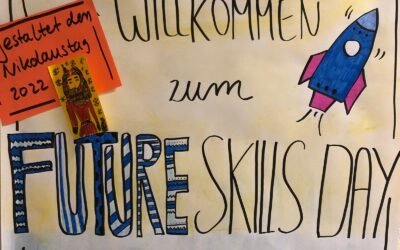 gestaltet den
Nikolaustag
2022
WILLKOMMEN
zum
FUTURE SKILLS DAY